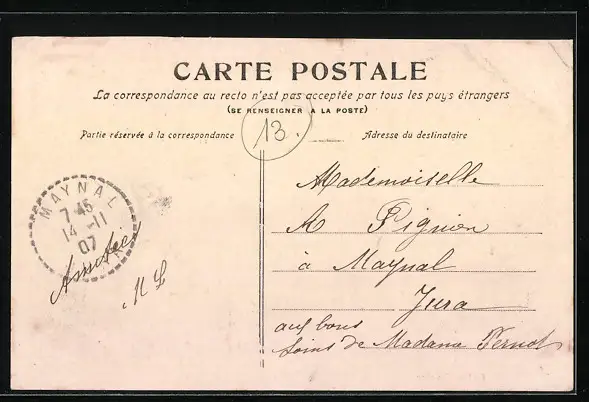 CARTE POSTALE
La correspondance au recto n'est pas acceptée par tous les pays étrangers
(SE RENSEIGNER A LA POSTE)
Partie réservée à la correspondance
13.
Adresse du destinataire
MAYNAL
7-45
14-11
07
Amitiés
ML
Mademoiselle
A Pignien
à Maynal
Jura
aux bons
soins de Madame Pernot